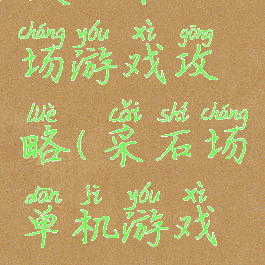 chǎng yóu xì gōng
场游戏攻
lüè cǎi shí chǎng
略(采石场
dān jī yóu xì
单机游戏